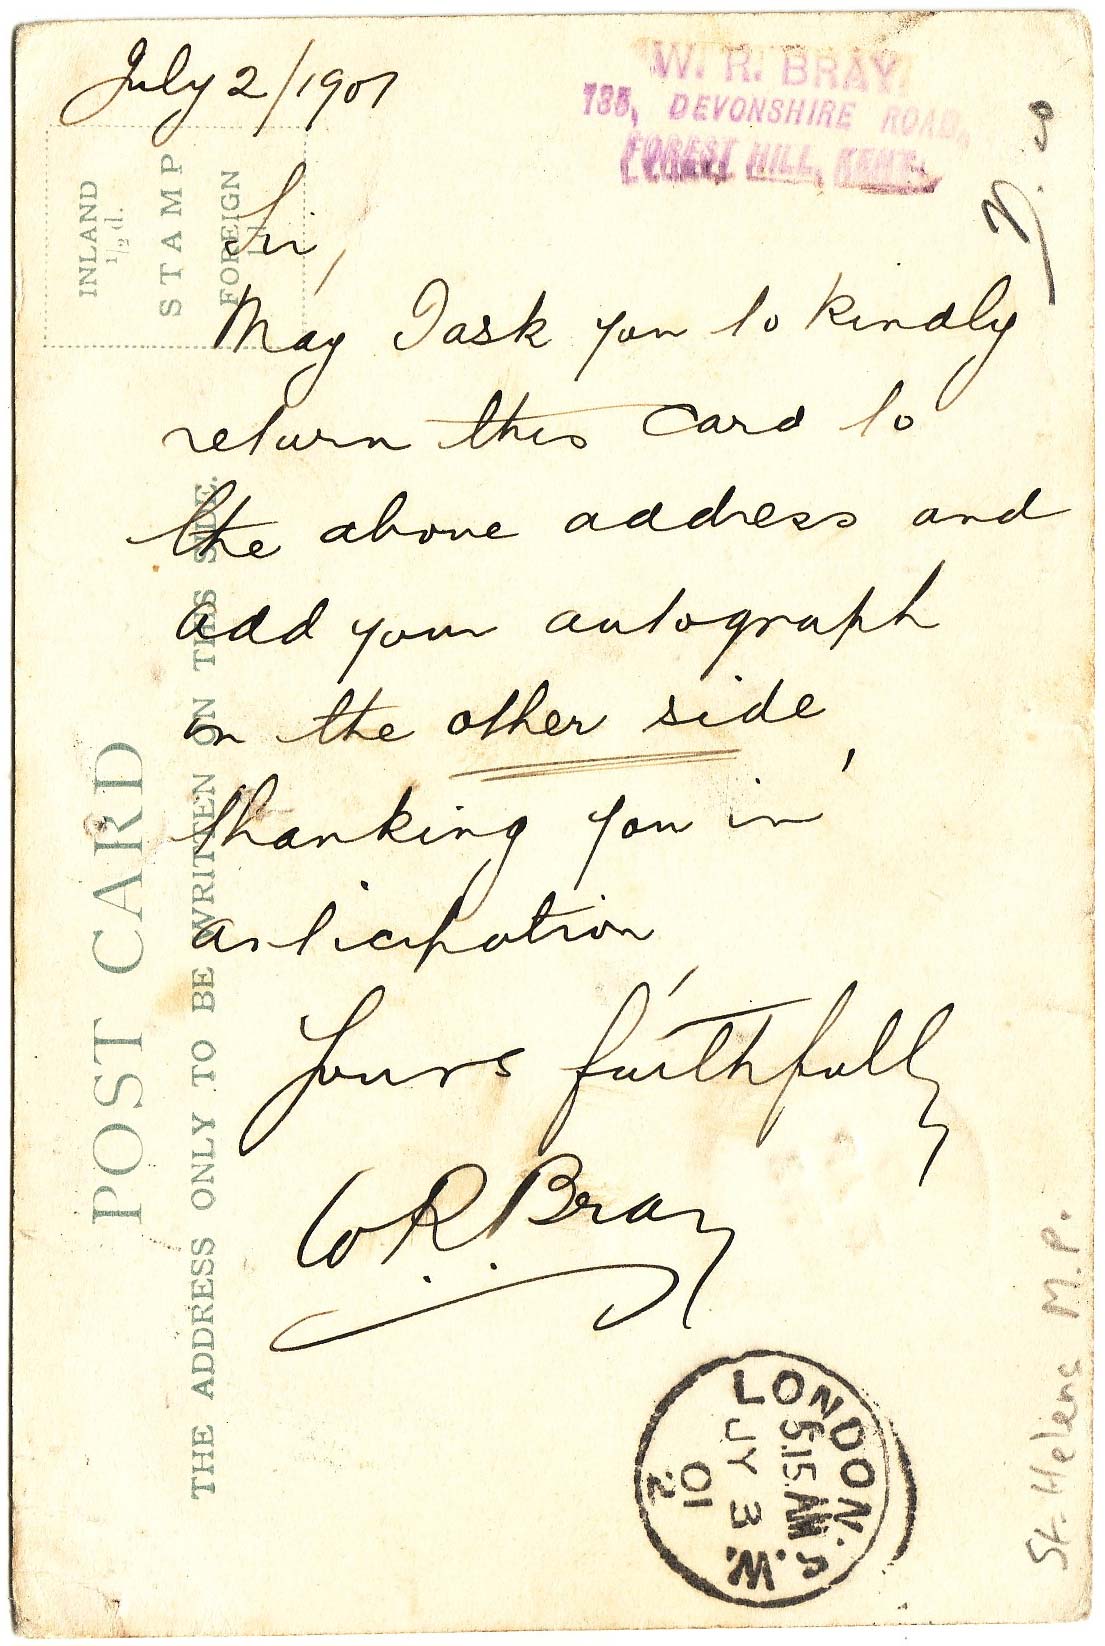 July 2/1901
W. R. BRAY,
135, DEVONSHIRE ROAD,
FOREST HILL, KENT.
INLAND
½d.
STAMP
FOREIGN
Sir,
May I ask you to kindly
return this card to
the above address and
add your autograph
on the other side,
thanking you in
anticipation,
Yours faithfully
W. R. Bray
POST CARD
THE ADDRESS ONLY TO BE WRITTEN ON THIS SIDE.
LONDON. S.W.
5.15 AM
JY 3
01
2
St. Helens M.P.